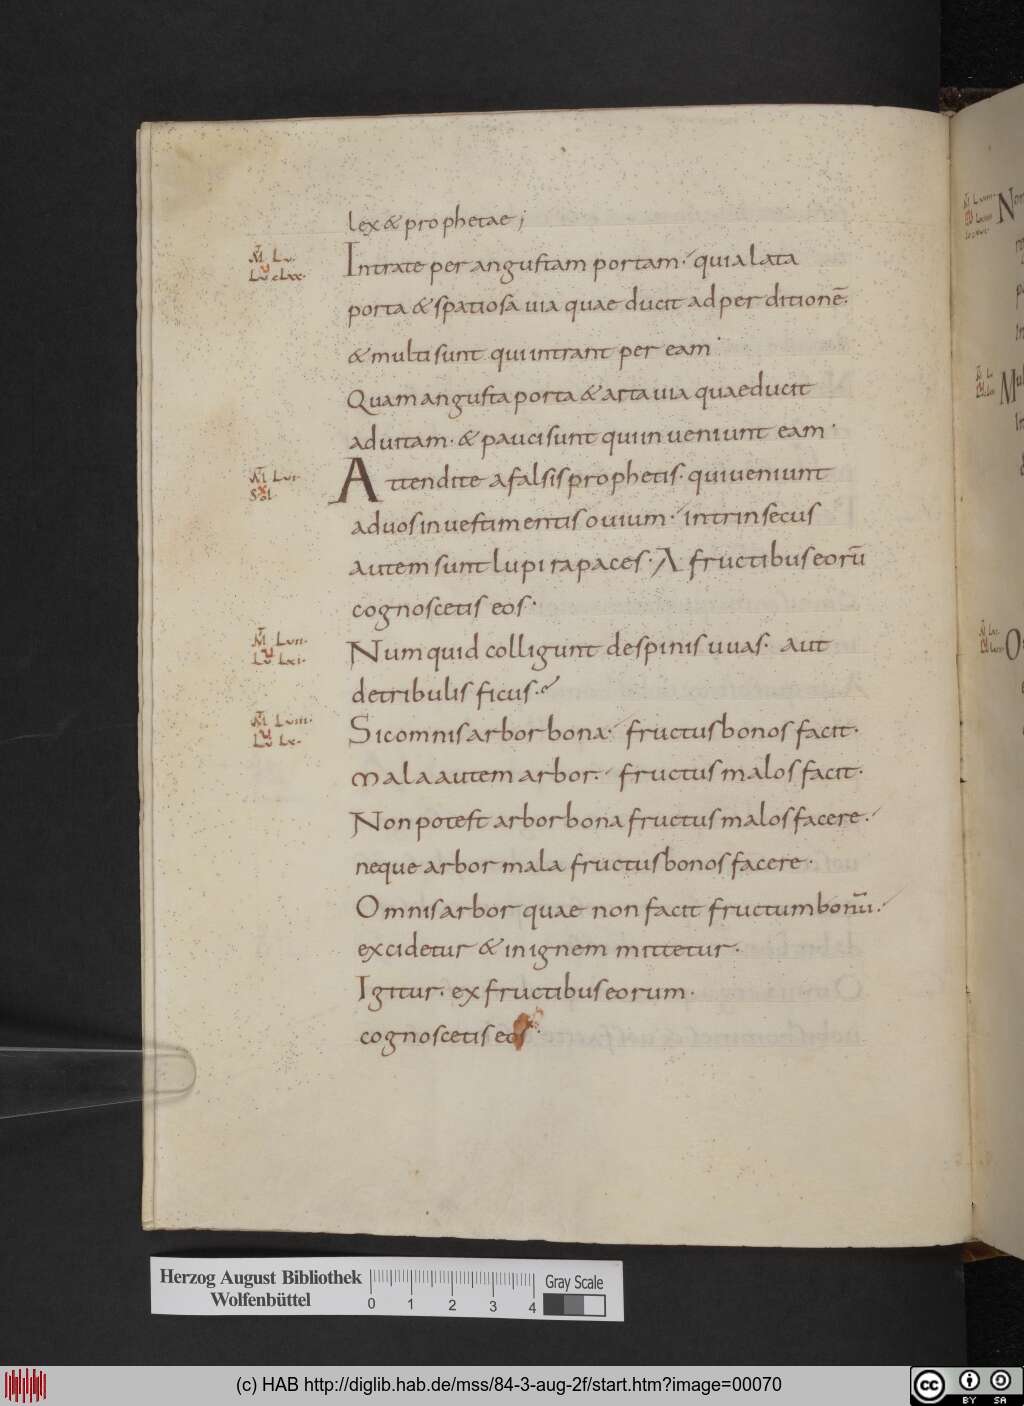 lex & prophetae;
Intrate per angustam portam. quia lata
porta & spatiosa uia quae ducit ad perditionē.
& multi sunt qui intrant per eam.
Quam angusta porta & arta uia quae ducit
ad uitam. & pauci sunt qui inueniunt eam.
Attendite a falsis prophetis. qui ueniunt
ad uos in uestimentis ouium. intrinsecus
autem sunt lupi rapaces. A fructibus eorū
cognoscetis eos.
Numquid colligunt de spinis uuas. aut
de tribulis ficus.
Sic omnis arbor bona. fructus bonos facit.
mala autem arbor. fructus malos facit.
Non potest arbor bona fructus malos facere.
neque arbor mala fructus bonos facere.
Omnis arbor quae non facit fructum bonū.
excidetur & in ignem mittetur.
Igitur. ex fructibus eorum.
cognoscetis eos.
Herzog August Bibliothek
Wolfenbüttel
0 1 2 3 4
Gray Scale
(c) HAB http://diglib.hab.de/mss/84-3-aug-2f/start.htm?image=00070
cc BY SA